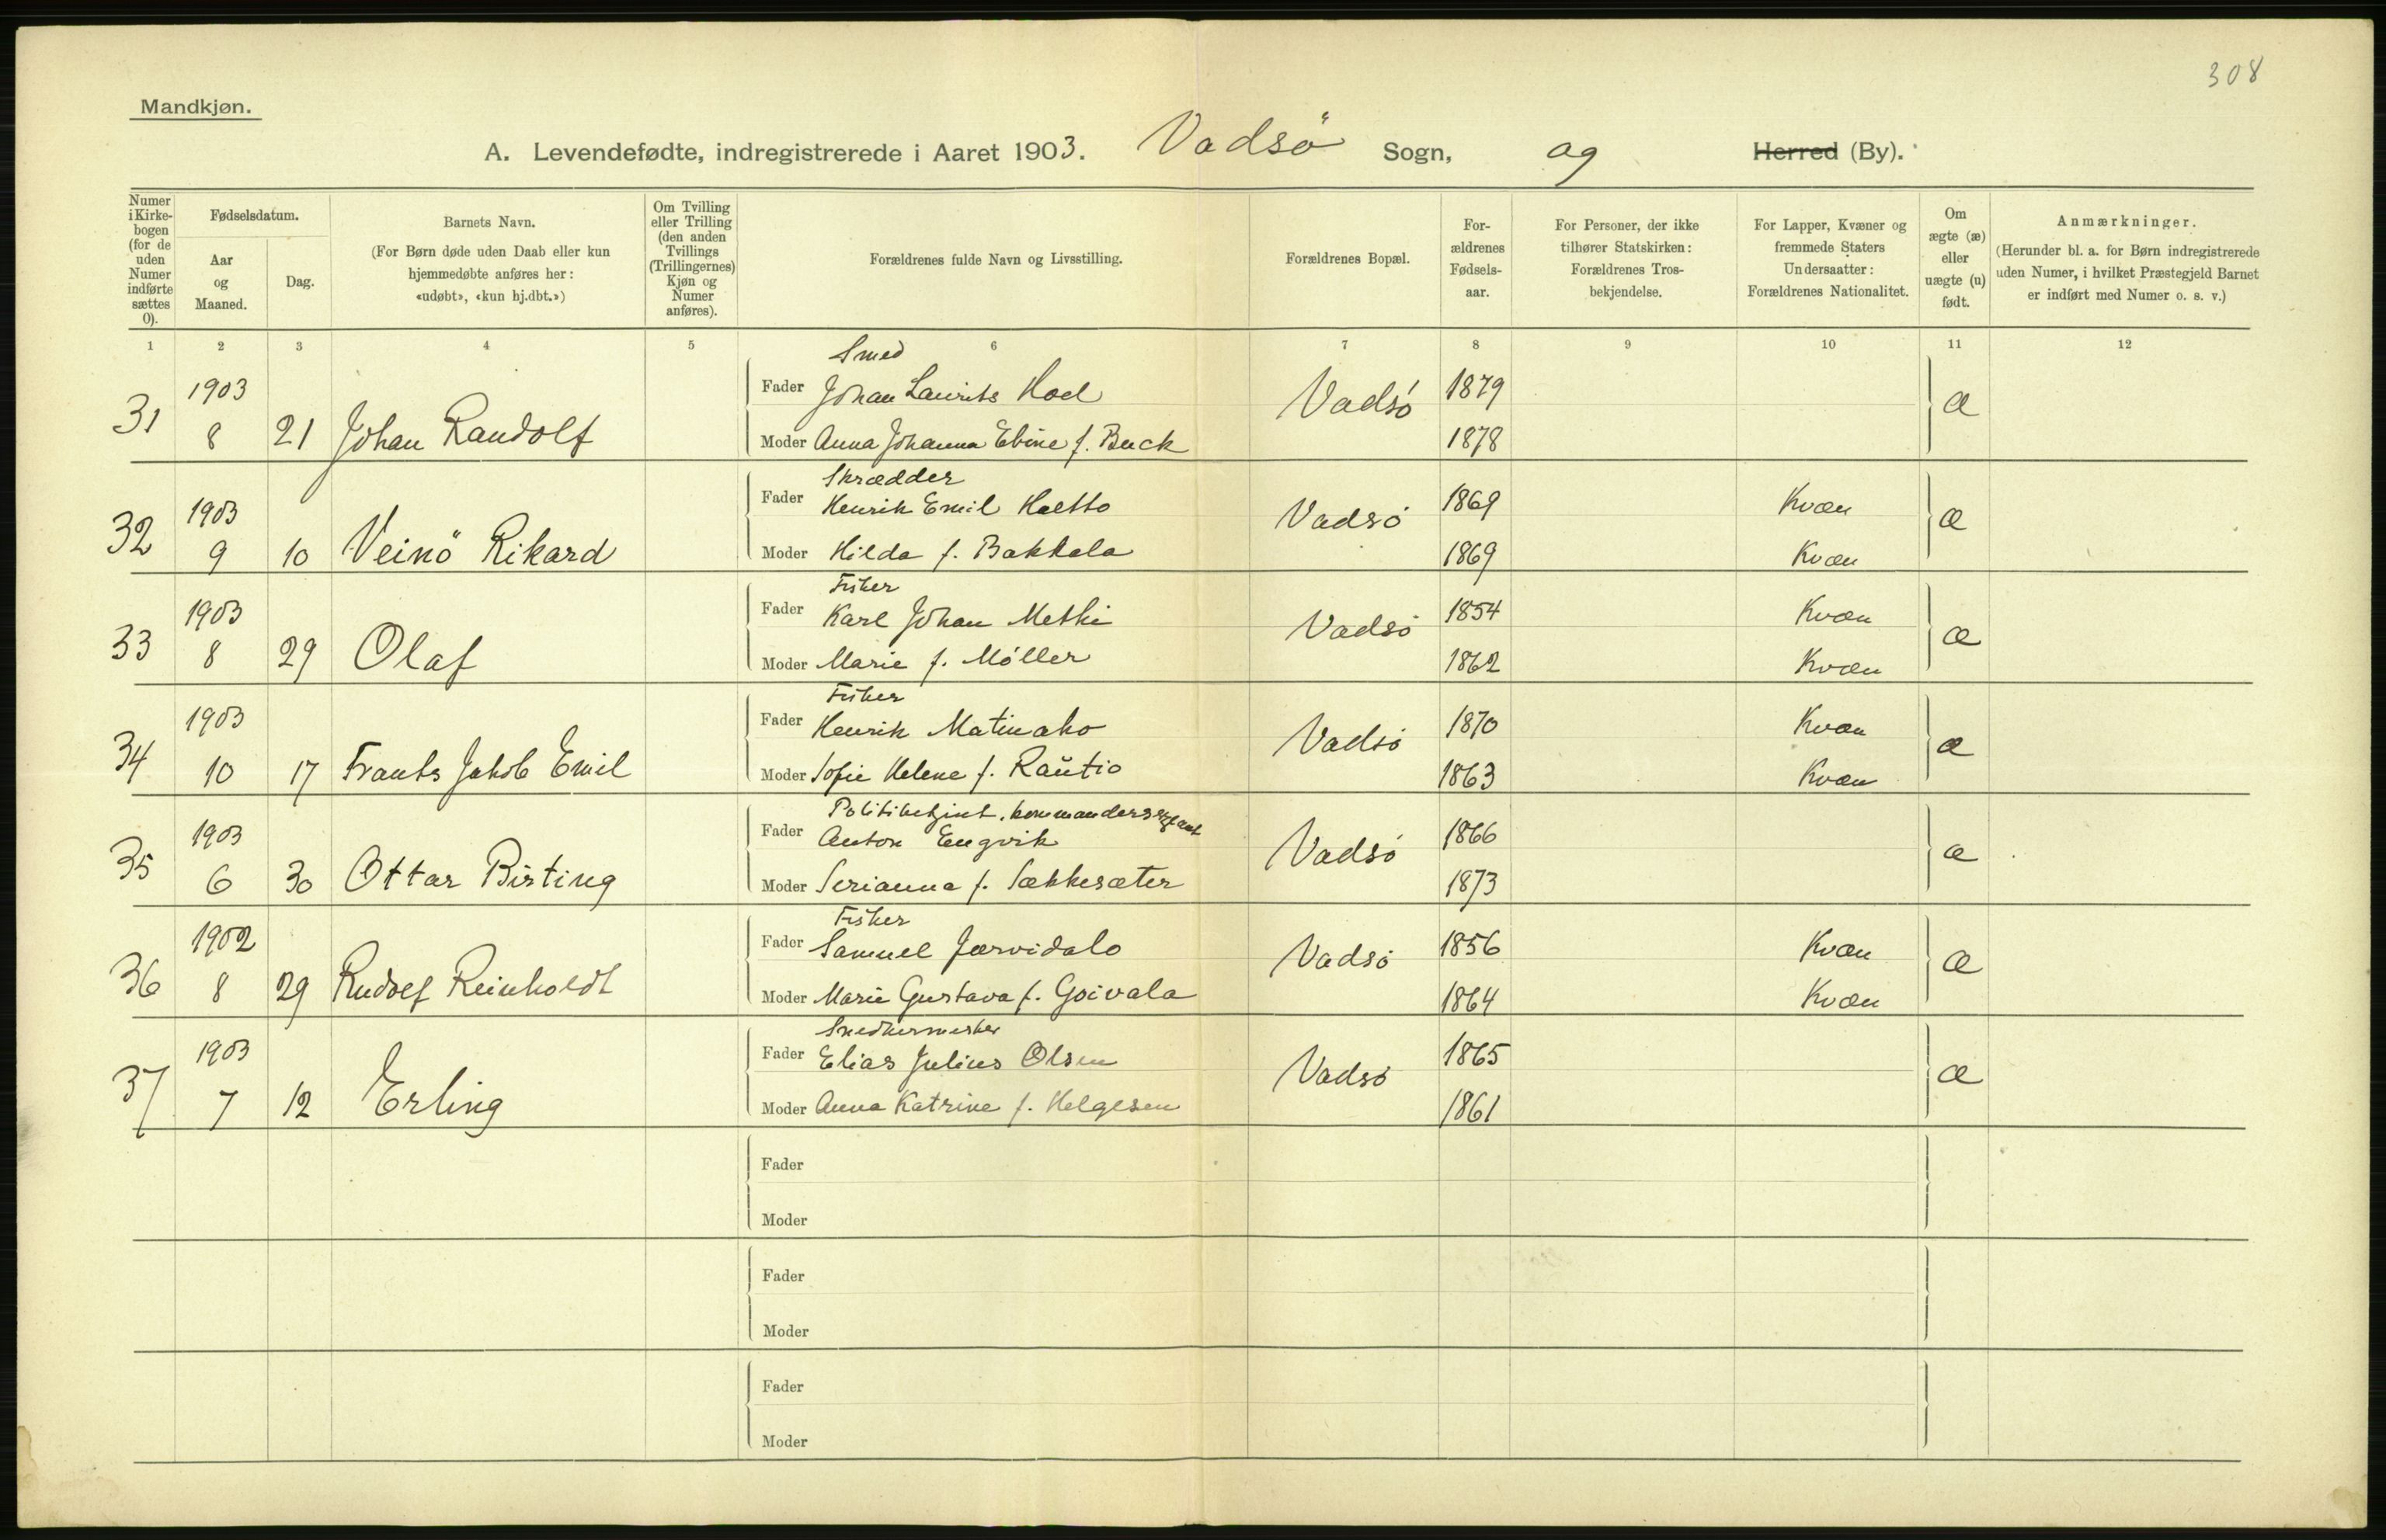 308
Mandkjøn.
A. Levendefødte, indregistrerede i Aaret 1903. Vadsö Sogn, og Herred (By).
Numer i Kirkebogen (for de uden Numer indførte sættes 0).
Fødselsdatum.
Aar og Maaned.
Dag.
Barnets Navn.
(For Børn døde uden Daab eller kun hjemmedøbte anføres her: «udøbt», «kun hj.dbt.»)
Om Tvilling eller Trilling (den anden Tvillings (Trillingernes) Kjøn og Numer anføres).
Forældrenes fulde Navn og Livsstilling.
Forældrenes Bopæl.
For-ældrenes Fødsels-aar.
For Personer, der ikke tilhører Statskirken: Forældrenes Tros-bekjendelse.
For Lapper, Kvæner og fremmede Staters Undersaatter: Forældrenes Nationalitet.
Om ægte (æ) eller uægte (u) født.
Anmærkninger.
(Herunder bl. a. for Børn indregistrerede uden Numer, i hvilket Præstegjeld Barnet er indført med Numer o. s. v.)
1 2 3 4 5 6 7 8 9 10 11 12
Smed
31 1903 8 21 Johan Randolf Fader Johan Laurits Hoel Vadsö 1879 æ
Moder Anna Johanna Ebine f. Buck 1878
Skrædder
32 1903 9 10 Veinö Rikard Fader Henrik Emil Haetto Vadsö 1869 Kvæn æ
Moder Hilda f. Bakkala 1869 Kvæn
Fisker
33 1903 8 29 Olaf Fader Karl Johan Methi Vadsö 1854 Kvæn æ
Moder Marie f. Möller 1862 Kvæn
Fisker
34 1903 10 17 Frants Jakob Emil Fader Henrik Matinaho Vadsö 1870 Kvæn æ
Moder Sofie Helene f. Raŭtio 1863 Kvæn
Politibetjent, kommandersergeant
35 1903 6 30 Ottar Birting Fader Anton Engvik Vadsö 1866 æ
Moder Serianna f. Sækkesæter 1873
Fisker
36 1902 8 29 Rudolf Reinholdt Fader Samuel Jærvidalo Vadsö 1856 Kvæn æ
Moder Marie Gustava f. Goivala 1864 Kvæn
Snedkermester
37 1903 7 12 Erling Fader Elias Julius Olsen Vadsö 1865 æ
Moder Anna Katrine f. Helgesen 1861
Fader
Moder
Fader
Moder
Fader
Moder